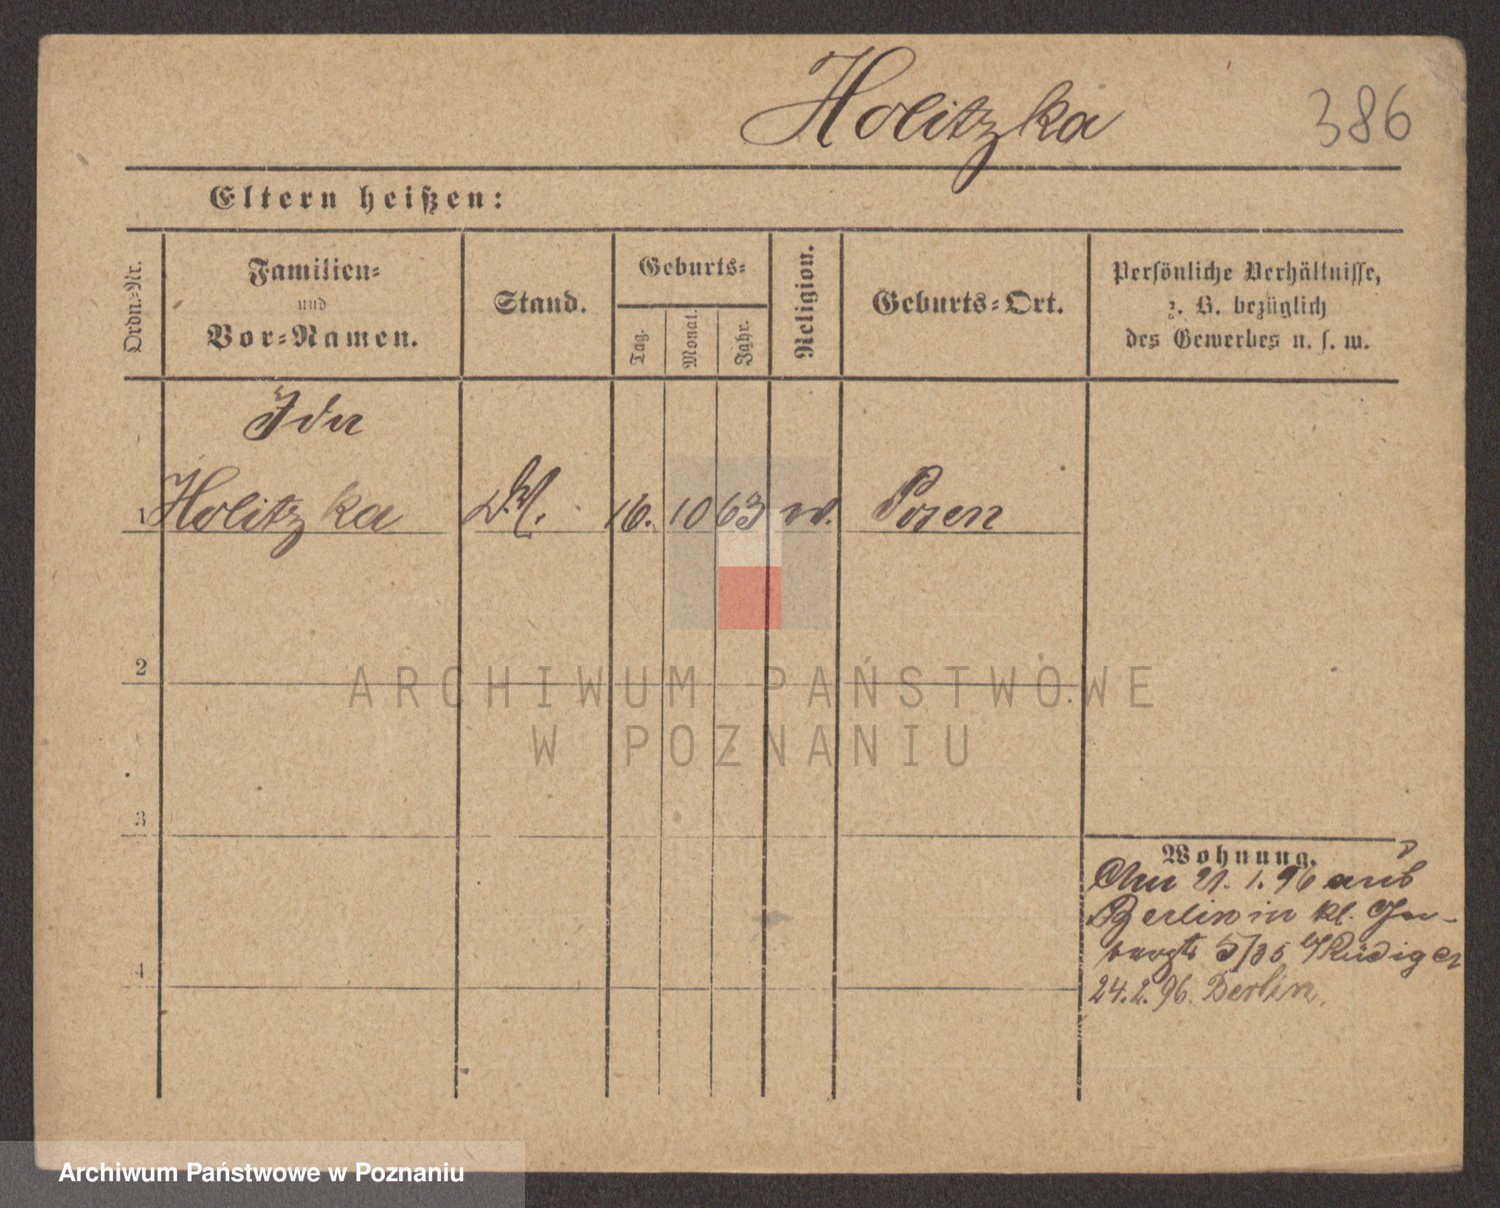 Holitzka
386
Eltern heißen:
Ordn.-Nr.
Familien-
und
Vor-Namen.
Stand.
Geburts-
Tag.
Monat.
Jahr.
Religion.
Geburts-Ort.
Persönliche Verhältnisse,
z. B. bezüglich
des Gewerbes u. s. w.
Ida
1 Holitzka 16. 10 63 Posen
2
3
4
Wohnung.
21. 1. 96 aus
Berlin in kl. Ger-
5/36 b/Rüdiger
24.2.96. Berlin.
ARCHIWUM PAŃSTWOWE
W POZNANIU
Archiwum Państwowe w Poznaniu